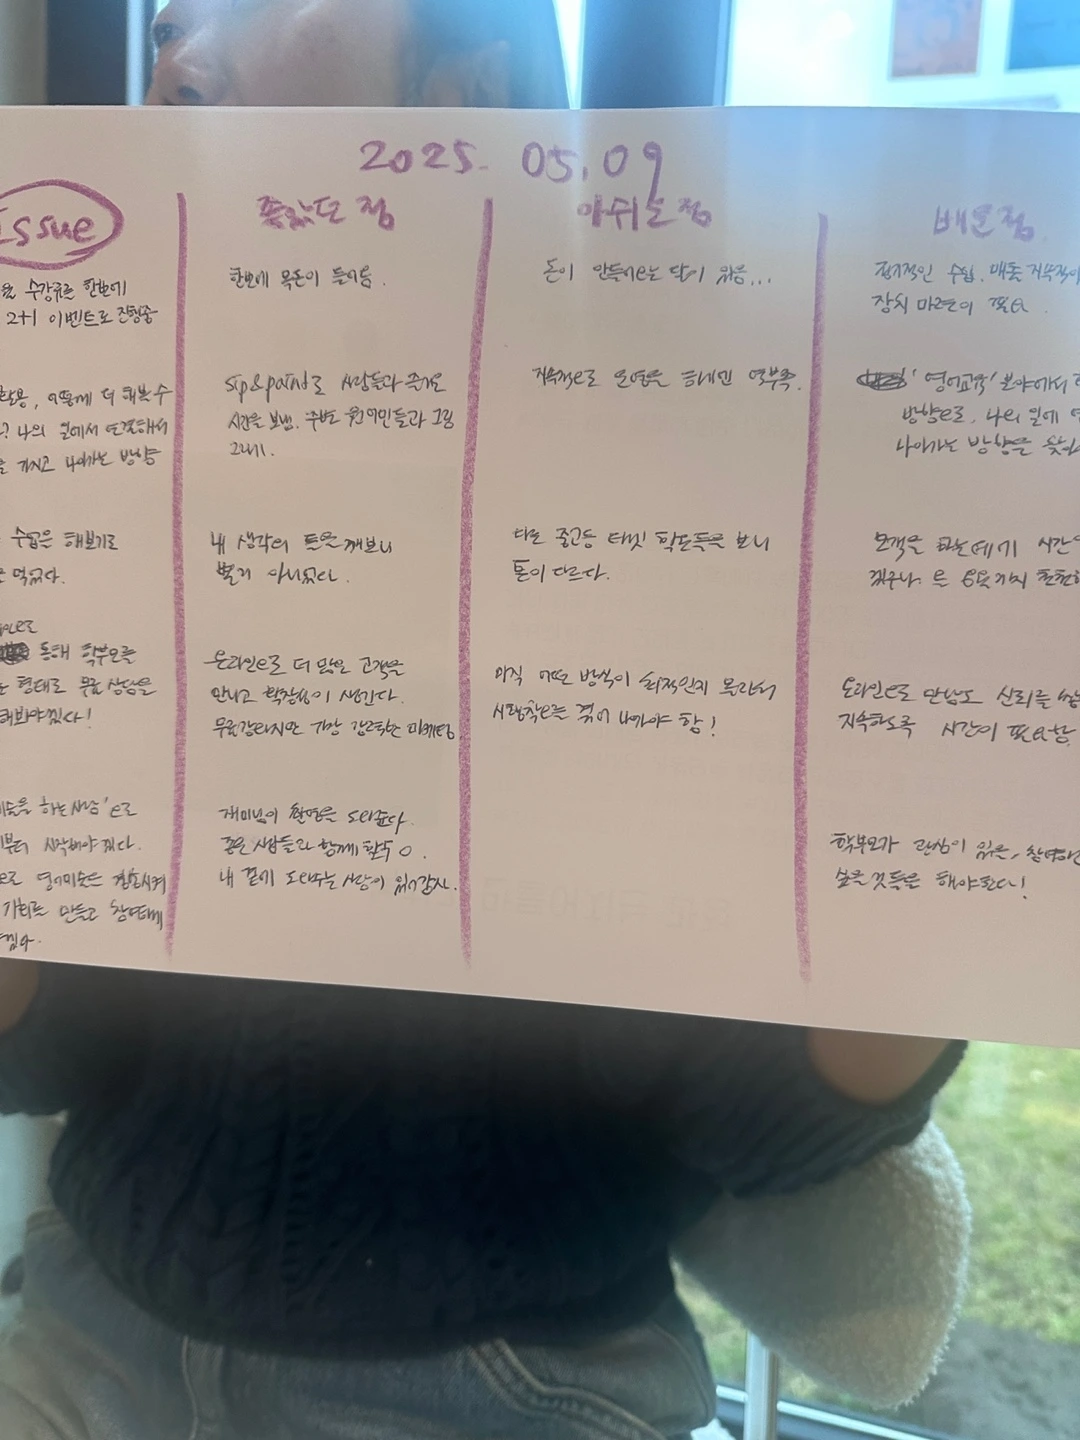 2025. 05.09
Issue
수강료를 한번에
2+1 이벤트로 진행중
활용, 어떻게 더 해볼수
? 나의 일에서 연결해서
가지고 나아가는 방향
수업은 해보기로
먹었다.
통해 학부모를
형태로 무료 상담을
해봐야겠다!
하는사람'으로
부터 시작해야 겠다.
영어미술은
기회로 만들고 참여하게
좋았던 점
한번에 목돈이 들어옴.
sip&paint로 사람들과 즐거운
시간을 보냄. 주변 원어민들과 그림
그리기.
내 생각의 틀을 깨보니
별거 아니었다.
온라인으로 더 많은 고객을
만나고 확장성이 생긴다.
무료강의지만 가장 강력한 마케팅
재미님이 촬영을 도와줬다.
좋은 사람들과 함께 할수 O.
내 곁에 도와주는 사람이 있어 감사.
아쉬운 점
돈이 안들어오는 달이 있음...
지속적으로 운영을 하기엔 역부족.
다른 중고등 타겟 학원들을 보니
톤이 다르다.
아직 어떤 방식이 최적인지 몰라서
시행착오를 겪어 나가야 함!
배운점
정기적인 수입. 매출 지속적
장치 마련이 필요.
'영어교육' 분야에서
방향으로. 나의 일에
나아가는 방향을
모객을 하는데에 시간
온라인으로 만남도 신뢰를
지속하도록 시간이 필요함.
학부모가 관심이 있을, 참여하
싶을 것들을 해야된다!